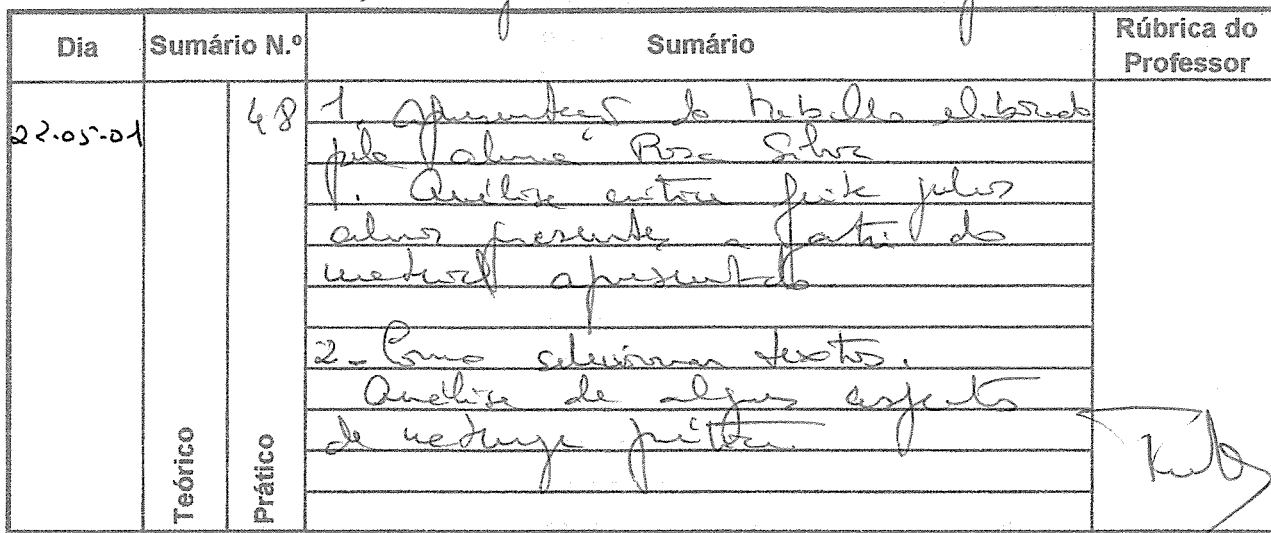 Dia Sumário N.º Sumário Rúbrica do Professor
22-05-01 48 1. Apresentação do trabalho elaborado
pela aluna Rosa Silva
. Análise crítica feita pelos
alunos presentes a partir do
material apresentado
2- Como selecionar textos.
Análise de alguns aspectos
de natureza prática.
Teórico Prático